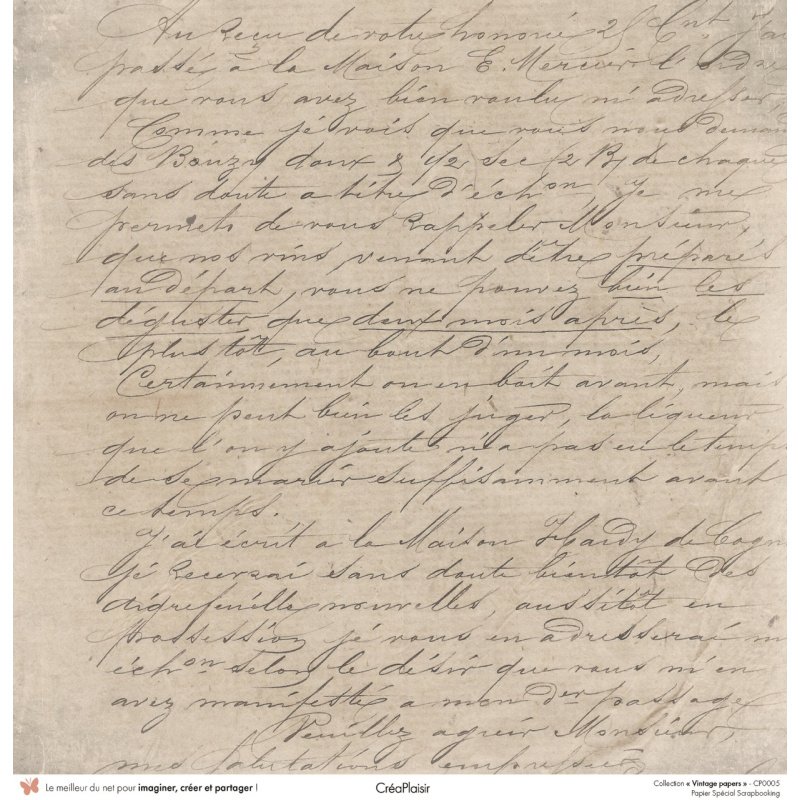 Au Recu de votre honorée 25 Cnt, j'ai
passé à la Maison E. Mercier l'ordre
que vous avez bien voulu m'adresser,
Comme je vois que vous nous deman
des Bouzy doux & 1/2 sec /2 B/ de chaque
sans doute a titre d'échon, je me
permets de vous rappeler Monsieur,
que nos vins, venant d'être préparés
au départ, vous ne pouvez bien les
déguster que deux mois après, le
plus tôt, au bout d'un mois,
Certainnement on en boit avant, mais
on ne peut bien les juger, la liqueur
que l'on y ajoute n'a pas eu le temps
de se marier suffisamment avant
ce temps.
J'ai écrit à la Maison Hardy de Cogn
je recevrai sans doute bientôt des
nouvelles, aussitôt en
possession je vous en adresserai un
échon selon le désir que vous m'en
avez manifesté a mon der passage
Veuillez agréer Monsieur,
mes salutations empressées
Le meilleur du net pour imaginer, créer et partager !
CréaPlaisir
Collection « Vintage papers » - CP0005
Papier Spécial Scrapbooking